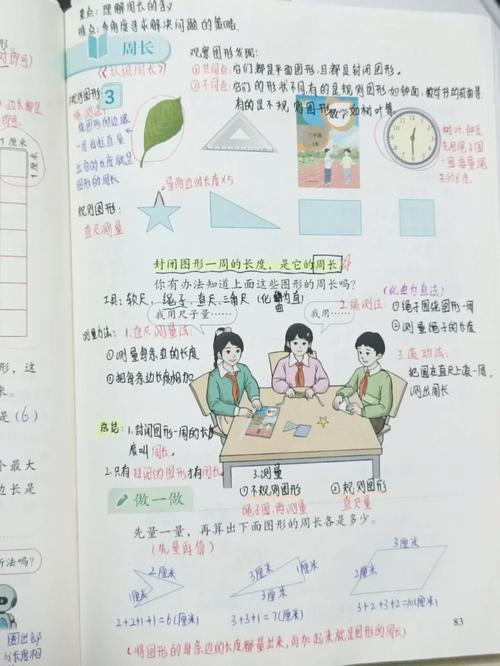 重点：理解周长的含义
难点：多角度寻求解决问题的策略.
周长
（认识周长）
观察图形发现：
①共同点：它们都是平面图形，且都是封闭图形。
②不同点：它们的形状不同，有的是规则图形，如钟面、数学书的封面等
有的是不规则图形，如树叶等
不规则图形：
3
绳测法：
绕图形的边缘
一周
出的长度就是
图形的周长
数学
三年级
树叶、钟表
先用绳子围
一圈，再量绳
子的长度
量两边的长度×5
规则图形：
直尺测量
封闭图形一周的长度，是它的周长
你有办法知道上面这些图形的周长吗？
（化曲为直法）
工具：软尺、绳子、直尺、三角尺（化曲为直）
我用尺子量……
我用……
2.绳测法：
①绳子围绕图形一周
②测量绳子的长度
测量方法：1.直尺测量法：
①测量每条边的长度
②把每条边长度相加
3.滚动法：
把圆在直尺上滚一周，
测出周长
总结：1.封闭图形一周的长
度叫周长。
2.只有封闭的图形才有周长
3.测量
①不规则图形
绳子围，再测量
②规则图形
直尺量
做一做
先量一量，再算出下面图形的周长各是多少。
（先量再算）
2厘米
1厘米
2+2+1+1=6（厘米）
3厘米
1厘米
3厘米
3+3+1=7（厘米）
3厘米
2厘米
3+2+3+2=10（厘米）
（将图形的每条边的长度都量出来，再加起来就是图形的周长）
83
1厘米
1厘米
形，这
是（6）
个最大
边长是
析法吗？